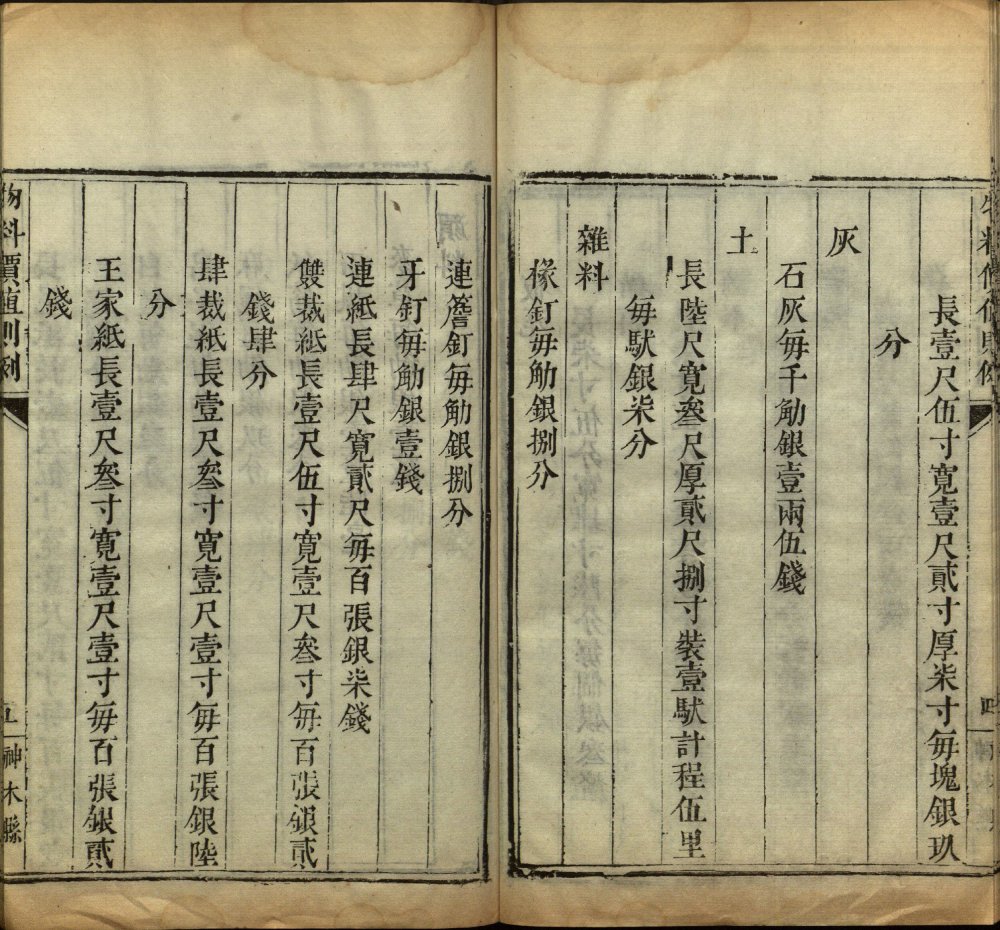 長壹尺伍寸寛壹尺貳寸厚柒寸毎塊銀玖
分
灰
石灰毎千觔銀壹兩伍錢
土
長陸尺寛叄尺厚貳尺捌寸裝壹馱計程伍里
毎馱銀柒分
雜料
椽釘毎觔銀捌分
連簷釘毎觔銀捌分
牙釘毎觔銀壹錢
連紙長肆尺寛貳尺毎百張銀柒錢
雙裁紙長壹尺伍寸寛壹尺叄寸毎百張銀貳
錢肆分
肆裁紙長壹尺叄寸寛壹尺壹寸毎百張銀陸
分
王家紙長壹尺叄寸寛壹尺壹寸毎百張銀貳
錢
物料價值則例 五 神木縣